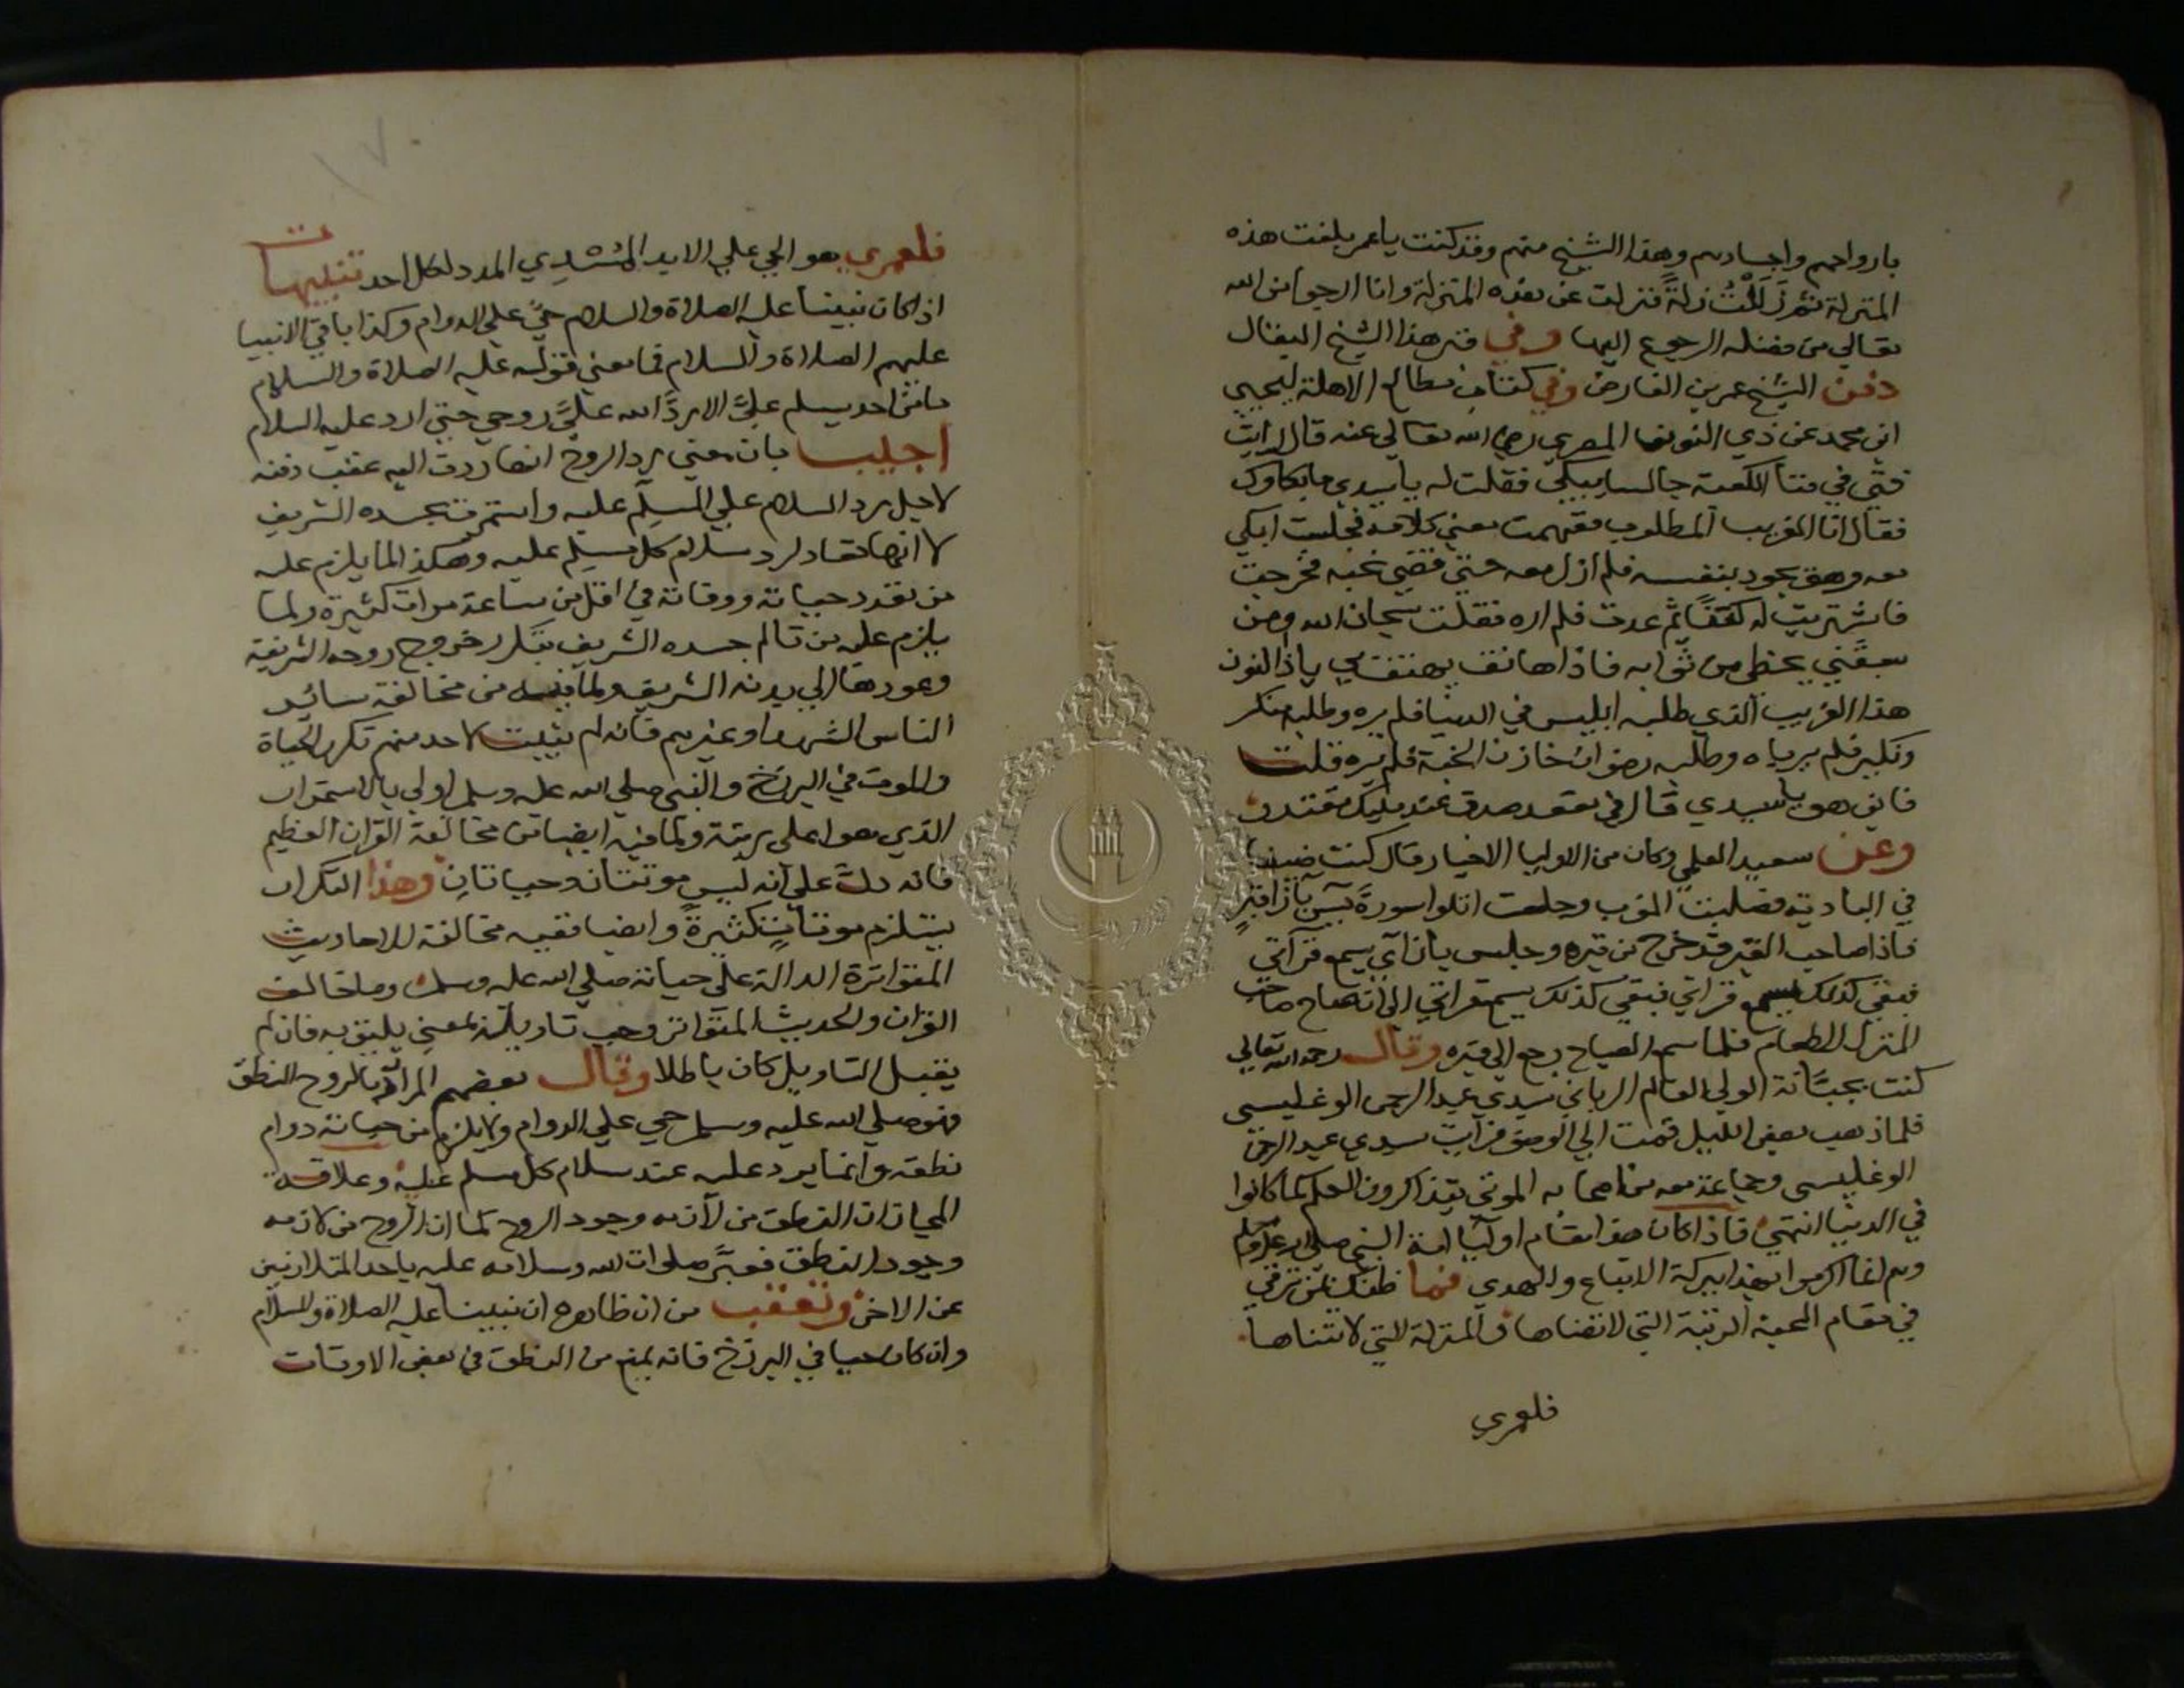 بارواحهم واجسادهم وهذا الشيخ منهم وقد كنت يا عمر بلغت هذه
المنزلة ثم زَلَلْتُ زلةً فنزلت عن هذه المنزلة وانا ارجوا من الله
تعالي من فضله الرجوع اليها وفي قبر هذا الشيخ البقال
دفن الشيخ عمر بن الفارض وفي كتاب مطالع الاهلة ليحيي
ابن محمد عن ذي النون المصري رضي الله تعالي عنه قال رايت
فتي في فنا الكعبة جالسا يبكي فقلت له يا سيدي ما بكاوك
فقال انا الغريب المطلوب ففهمت معني كلامه فجلست ابكي
معه وهو يجود بنفسه فلم ازل معه حتي قضي نحبه فخرجت
فاشتريت له كفنًا ثم عدت فلم اره فقلت سبحان الله ومن
سبقني بحظي من ثوابه فاذا هاتف يهتف بي يا ذا النون
هذا الغريب الذي طلبه ابليس في الدنيا فلم يره وطلبه منكر
ونكير فلم يرياه وطلبه رضوان خازن الجنة فلم يره قلت
فاين هو يا سيدي قال في مقعد صدق عند مليك مقتدر
وعن سعيد العلمي وكان من الاوليا الاخيار قال كنت ضيفا
في البادية فصليت المغرب وجلست اتلوا سورة يسٓ بازا قبرٍ
فاذا صاحب القبر قد خرج من قبره وجلس بازآي يسمع قرآتي
فبقي كذلك يسمع قرآتي الي ان صاح صاحب
المنزل للطعام فلما سمع الصياح رجع الي قبره وقال رحمه الله تعالي
كنت بجبَّانة الولي العالم الرباني سيدي عبد الرحمن الوغليسي
فلما ذهب بعض الليل قمت الي الوضو فرآيت سيدي عبد الرحمن
الوغليسي وجماعة معه من اصحابه الموتي يتذاكرون العلم كما كانوا
في الدنيا انتهي فاذا كان هذا مقام اوليآ امة النبي صلي الله عليه وسلم
وهم انما اكرموا بهذا ببركة الاتباع والهدي فما ظنك بمن ترقي
في مقام المحبة الرتبة التي لا تضاها والمنزلة التي لا تتناها
فلعمري
فلعمري هو الحي علي الابد المُسْدِي المدد لكل احد تنبيهات
اذا كان نبينا عليه الصلاة والسلام حيٌّ علي الدوام وكذا باقي الانبيا
عليهم الصلاة والسلام فما معني قوله عليه الصلاة والسلام
ما من احد يسلم عليَّ الا ردَّ الله عليَّ روحي حتي ارد عليه السلام
اجيب بان معني رد الروح انها ردت اليه عقب دفنه
لاجل رد السلام علي المسلِّم عليه واستمرت بجسده الشريف
لا انها تعاد لرد سلام كل مسلم عليه وهكذا لما يلزم عليه
من تعدد حياته ووفاته في اقل من ساعة مرات كثيرة ولما
يلزم عليه من تالم جسده الشريف بتكرر خروج روحه الشريفة
وعودها الي بدنه الشريف ولما فيه من مخالفة ساير
الناس الشهدا وغيرهم فانه لم يثبت لاحد منهم تكرر الحياة
والموت في البرزخ والنبي صلي الله عليه وسلم اولي بالاستمرار
الذي هو اعلي رتبة ولما فيه ايضا من مخالفة القرآن العظيم
فانه دلَّ علي انه ليس موتتان وحياتان وهذا التكرار
يستلزم موتاتٍ كثيرةً وايضا ففيه مخالفة للاحاديث
المتواترة الدالة علي حياته صلي الله عليه وسلم وما خالف
القرآن والحديث المتواتر وجب تاويله بمعني يليق به فان لم
يقبل التاويل كان باطلا وقال بعضهم المراد بالروح النطق
فهو صلي الله عليه وسلم حي علي الدوام ولا يلزم من حياته دوام
نطقه وانما يرد عليه عند سلام كل مسلم عليه وعلاقة
المجاز ان النطق من لازمه وجود الروح كما ان الروح من لازمه
وجود النطق فعبَّر صلوات الله وسلامه عليه باحد المتلازمين
عن الاخر وتعقب من ان ظاهره ان نبينا عليه الصلاة والسلام
وان كان حيا في البرزخ فانه يمنع من النطق في بعض الاوقات